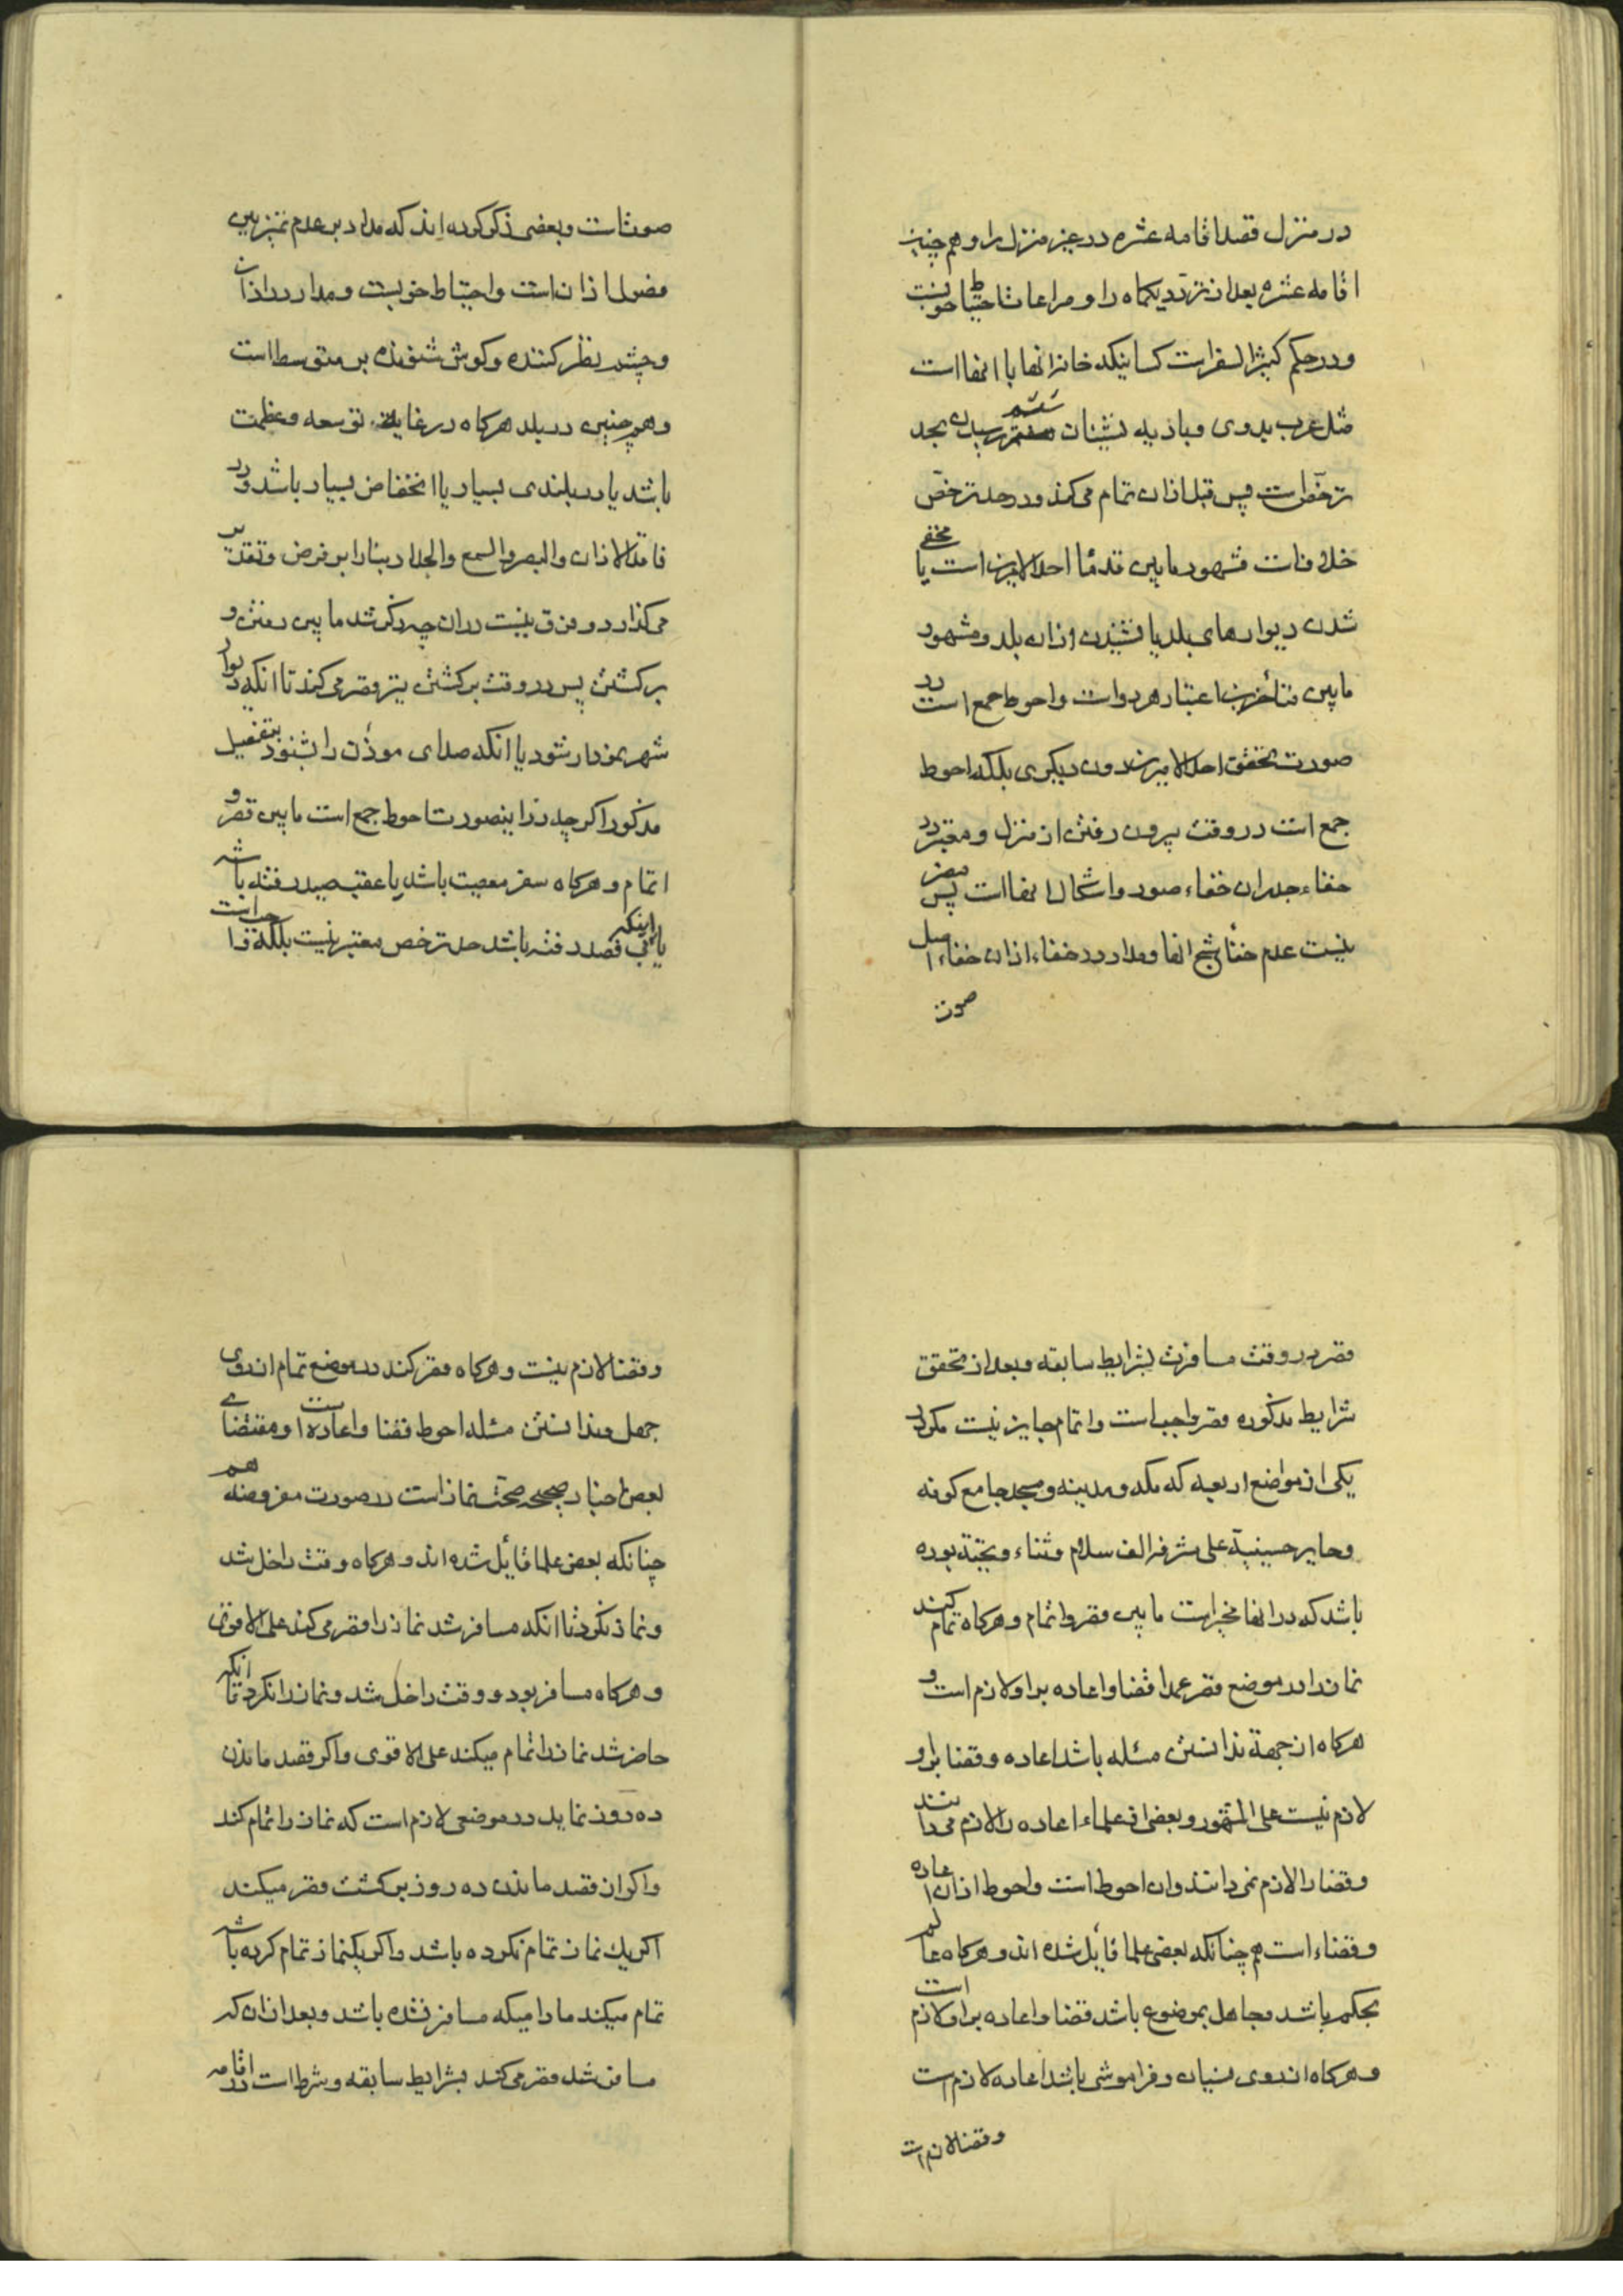 در منزل قصد اقامه عشره در غیر منزل را و هم چنین
اقامه عشره بعد از تردد یکماه را و مراعات احتیاط خوبست
و در حکم کثیر السفر است کسانیکه خانه انها با انها است
مثل عرب بدوی و بادیه نشینان ششم رسیدن بحد
ترخص است پس قبل از ان تمام می کند و در حد ترخص
خلافست مشهور مابین قدما احد الامرین است یا مخفی
شدن دیوارهای بلد یا نشنیدن اذان بلد و مشهور
مابین متأخرین اعتبار هر دو است و احوط جمع است در
صورت تحقق احد الامرین بدون دیگری بلکه احوط
جمع است در وقت بیرون رفتن از منزل و معتبر در
خفاء جدران خفاء صور و اشکال انها است پس مضر
نیست عدم خفأ شبح انها و مدار در خفاء اذان خفاء اصل
صوت
صوت است و بعضی ذکر کرده اند که مدار بر عدم تمیز بین
فصول اذان است و احتیاط خوبست و مدار در اذان
و چشم نظر کننده و کوش شنونده بر متوسط است
و همچنین در بلد هرکاه در غایة توسعه و عظمت
باشد یا در بلندی بسیار یا انخفاض بسیار باشد و در
فاقد الاذان و البصر و السمع و الجدار بنا را بر فرض و تقدیر
می کذارد و فرق نیست در ان چه ذکر شد مابین رفتن و
برکشتن پس در وقت برکشتن نیز قصر می کند تا انکه دیوار
شهر نمودار شود یا انکه صدای موذن را بشنود بتفصیل
مذکور اکرچه در اینصورت احوط جمع است مابین قصر و
اتمام و هرکاه سفر معصیت باشد یا عقب صید رفته باشد
یا اینکه بی قصد رفته باشد حد ترخص معتبر نیست بلکه واجب است
قصر در وقت مسافرت بشرایط سابقه و بعد از تحقق
شرایط مذکوره قصر واجب است و اتمام جایز نیست مکر در
یکی از مواضع اربعه که مکه و مدینه و مسجد جامع کوفه
و حایر حسینیة علی مشرفه الف سلام و ثناء و تحیّة بوده
باشد که در انها مخیر است مابین قصر و اتمام و هرکاه تمام کند
نماز را در موضع قصر عمدا قضا و اعاده بر او لازم است و
هرکاه از جهة ندانستن مسئله باشد اعاده و قضا بر او
لازم نیست علی المشهور و بعضی از علماء اعاده را لازم می دانند
و قضا را لازم نمی دانند و ان احوط است و احوط از ان اعاده
و قضاء است هم چنانکه بعضی علما قایل شده اند و هرکاه عالم
بحکم باشد و جاهل بموضوع باشد قضا و اعاده بر او لازم است
و هرکاه از روی نسیان و فراموشی باشد اعاده لازم است
و قضا لازم است
و قضا لازم نیست و هرکاه قصر کند در موضع تمام از روی
جهل و ندانستن مسئله احوط قضا و اعاده است و مقتضای
بعض اخبار صحیحه صحّت نماز است در صورت مفروضه هم
چنانکه بعض علما قایل شده اند و هرکاه وقت داخل شد
و نماز نکرد تا انکه مسافر شد نماز را قصر می کند علی الاقوی
و هرکاه مسافر بود و وقت داخل شد و نماز را نکرد تا انکه
حاضر شد نماز را تمام میکند علی الاقوی و اکر قصد ماندن
ده روز نماید در موضعی لازم است که نماز را تمام کند
و اکر از قصد ماندن ده روز برکشت قصر میکند
اکر یك نماز تمام نکرده باشد و اکر یکنماز تمام کرده باشد
تمام میکند مادامیکه مسافر نشده باشد و بعد از ان که
مسافر شد قصر می کند بشرایط سابقه و شرط است در اقامه